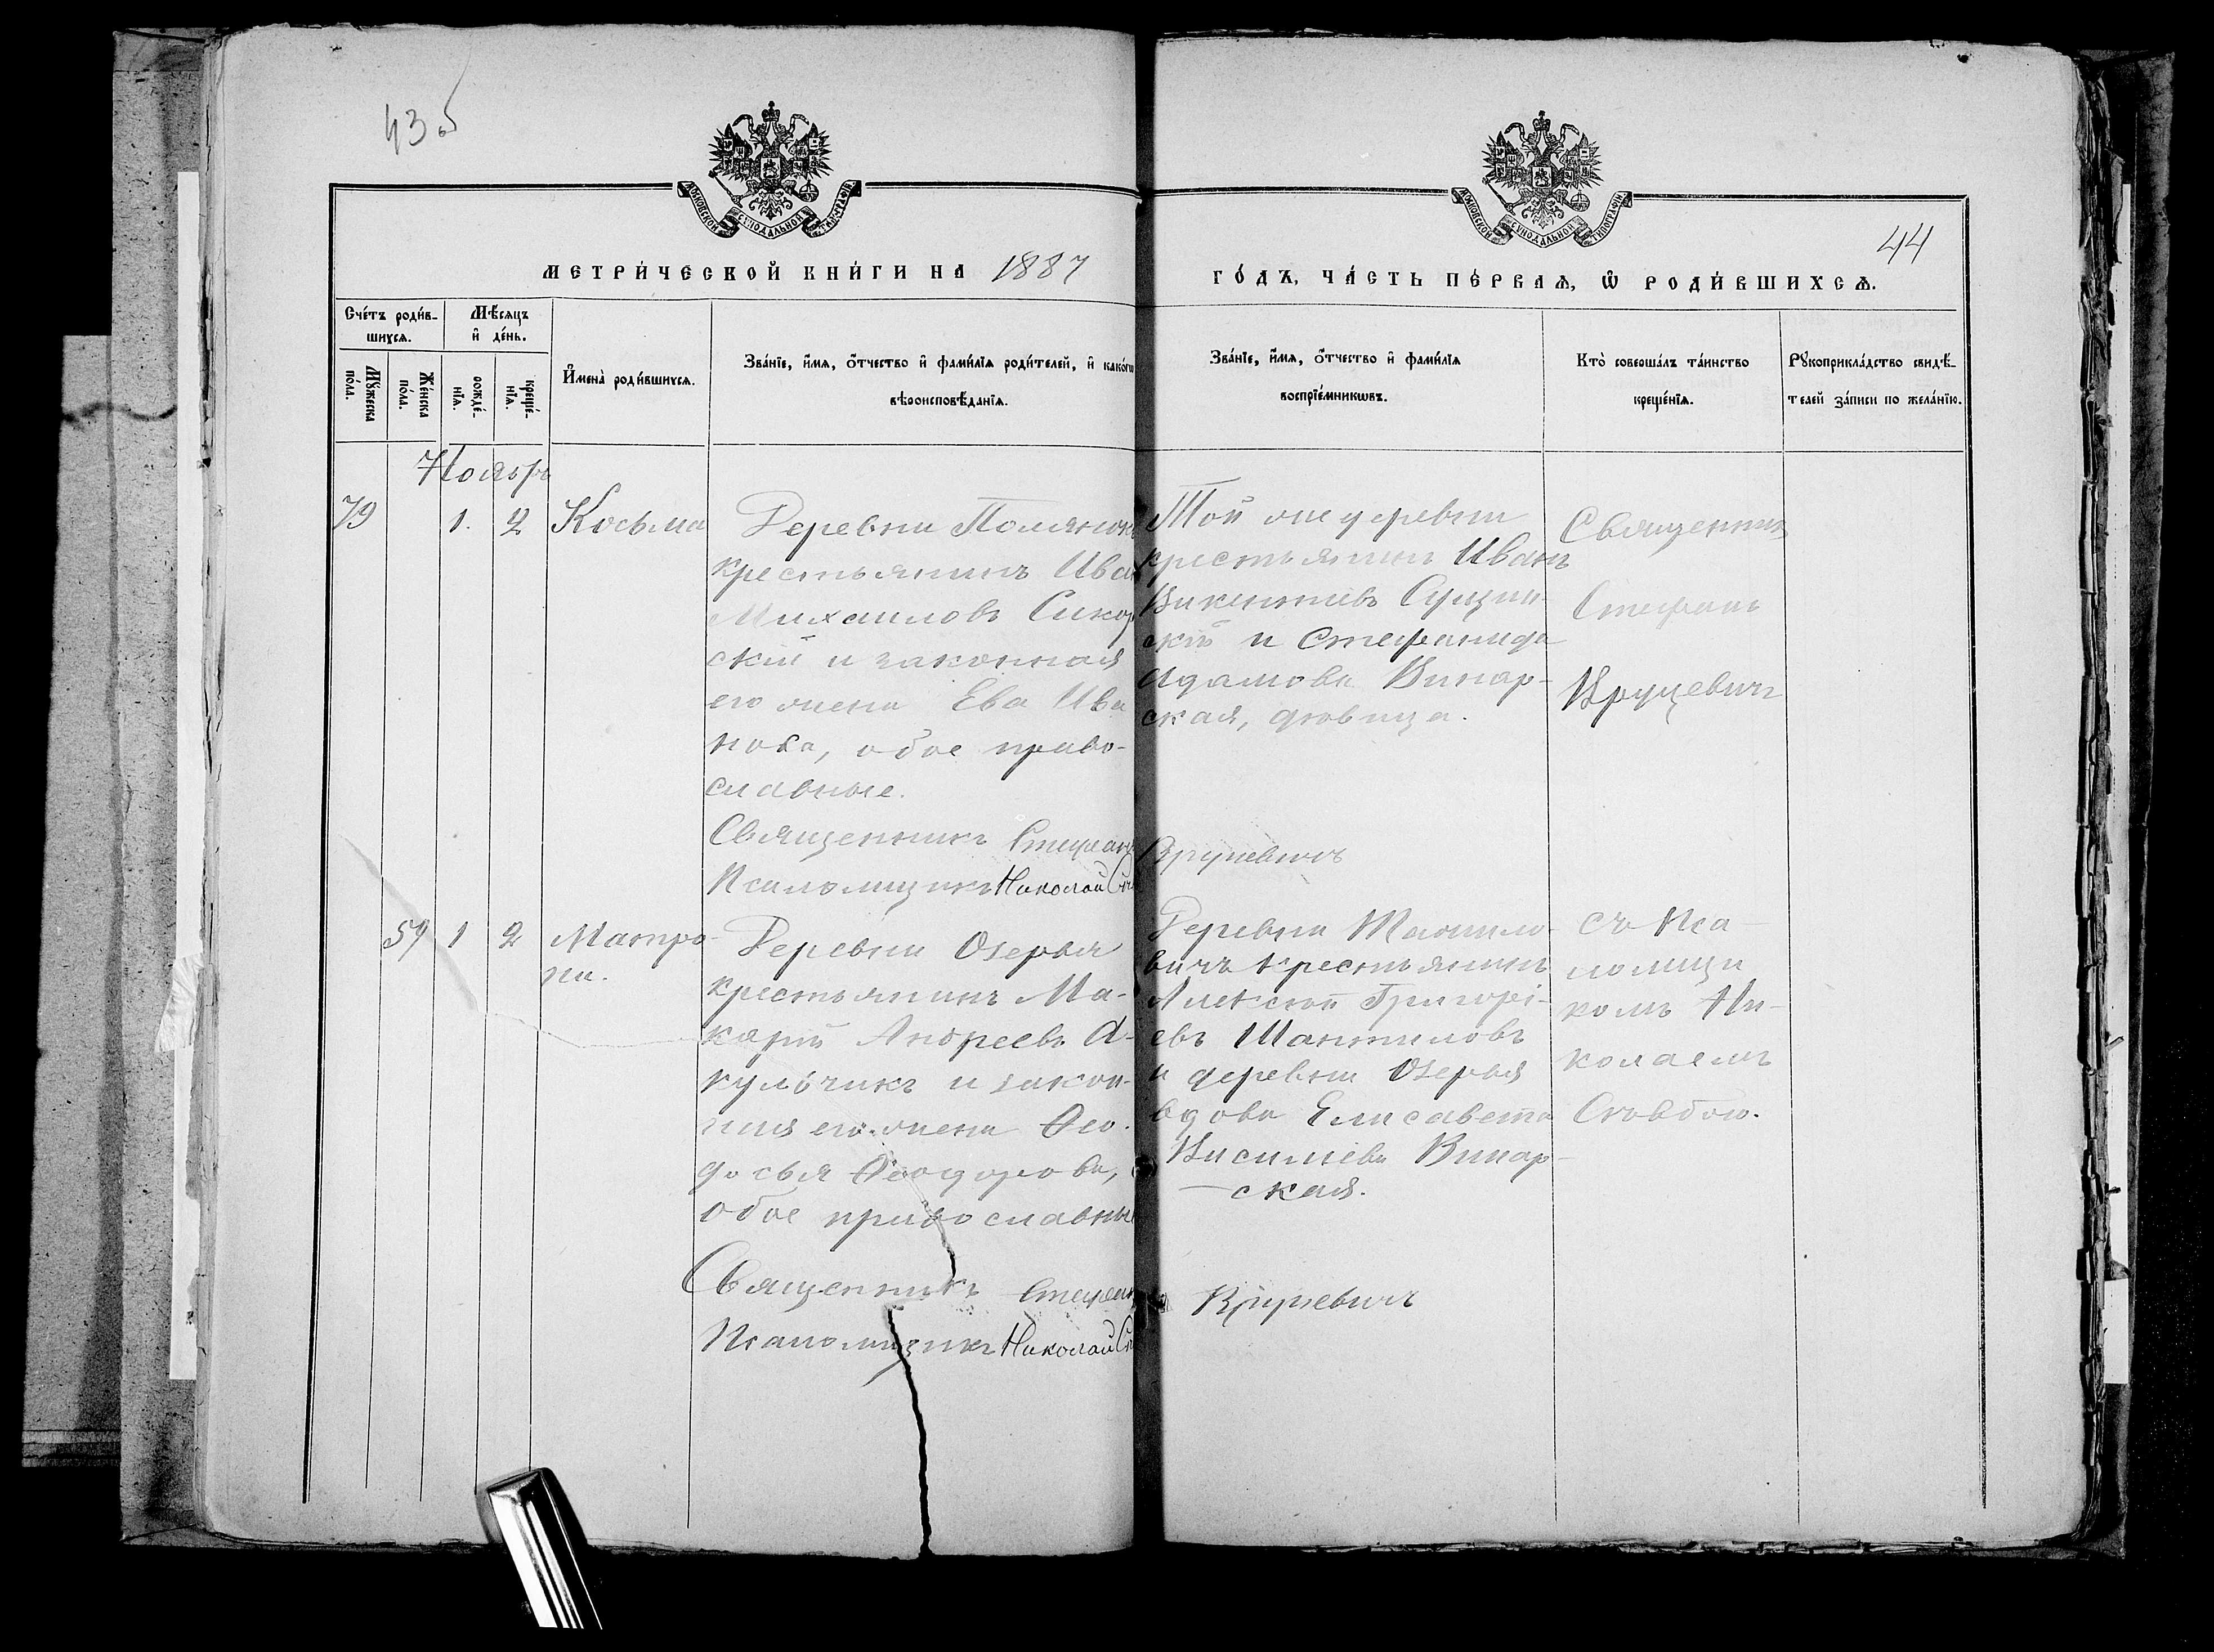 43 об
МОСКОВСКОЙ СУНОДАЛЬНОЙ ТИПОГРАФІИ
МОСКОВСКОЙ СУНОДАЛЬНОЙ ТИПОГРАФІИ
44
МЕТРИ́ЧЕСКОЙ КНИ́ГИ НА 1887
ГО́ДЪ, ЧА́СТЬ ПЕ́РВАѦ, Ѿ РОДИ́ВШИХСѦ.
Сче́тъ роди́в-
шихсѧ.
Мѣ́сѧцъ
и҆ де́нь.
Мꙋ́жеска
по́ла.
Же́нска
по́ла.
рожде́-
нїѧ.
креще́-
нїѧ.
И҆мена̀ роди́вшихсѧ.
Зва́нїе, и҆́мѧ, ѻ҆́тчество и҆ фами́лїѧ роди́телей, и҆ како́гѡ
вѣроисповѣ́данїѧ.
Зва́нїе, и҆́мѧ, ѻ҆́тчество и҆ фами́лїѧ
воспрїе́мникѡвъ.
Кто̀ соверша́лъ та́инство
креще́нїѧ.
Рꙋкоприкла́дство свидѣ́-
телей за́писи по жела́нїю.
Ноябрь
79
1. 2
Косьма
Деревни
крестьянинъ Иван
Михаиловъ Сикор
скій и законная
его жена Ева Ива
нова, обое право-
славные.
Священникъ Стефанъ
Псаломщикъ Николай
Той же деревни
крестьянинъ Иванъ
Викентіевъ Сущин-
скій и Стефанида
Адамова Винар-
ская, дѣвица.
Круцевичъ
Священникъ
Стефанъ
Круцевичъ
59 1 2
Матро-
на.
Деревни Озерья
крестьянинъ Ма-
карій Андреевъ А-
кульчикъ и закон-
ная его жена Ѳео-
досья Ѳеодорова,
обое православные
Священникъ Стефанъ
Псаломщикъ Николай
Деревни
вичъ крестьянинъ
Алексѣй Григорі-
евъ Шантиловъ
и деревни Озерья
вдова Елисавета
Василіева Винар-
ская.
Круцевичъ
съ Пса-
ломщи
комъ Ни-
колаемъ